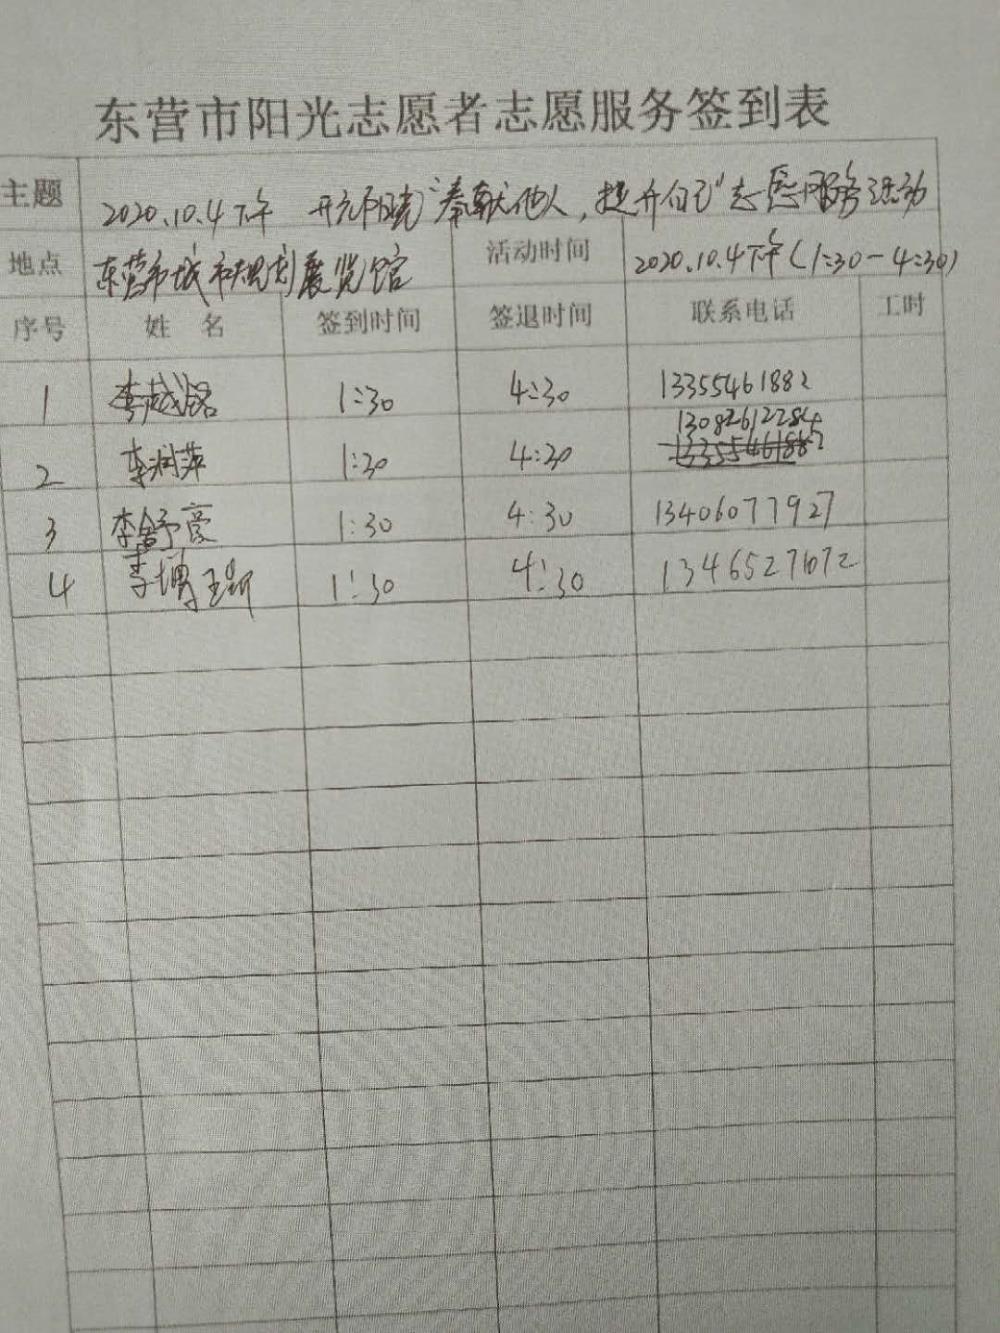 东营市阳光志愿者志愿服务签到表
主题 2020.10.4下午 "奉献他人,提升自己"志愿服务活动
地点 东营市城市规划展览馆 活动时间 2020.10.4下午(1:30-4:30)
序号 姓名 签到时间 签退时间 联系电话 工时
1 李越铭 1:30 4:30 13355461882
13082612284
2 李润萍 1:30 4:30
3 李舒豪 1:30 4:30 13406077927
4 李博 1:30 4:30 13465271672